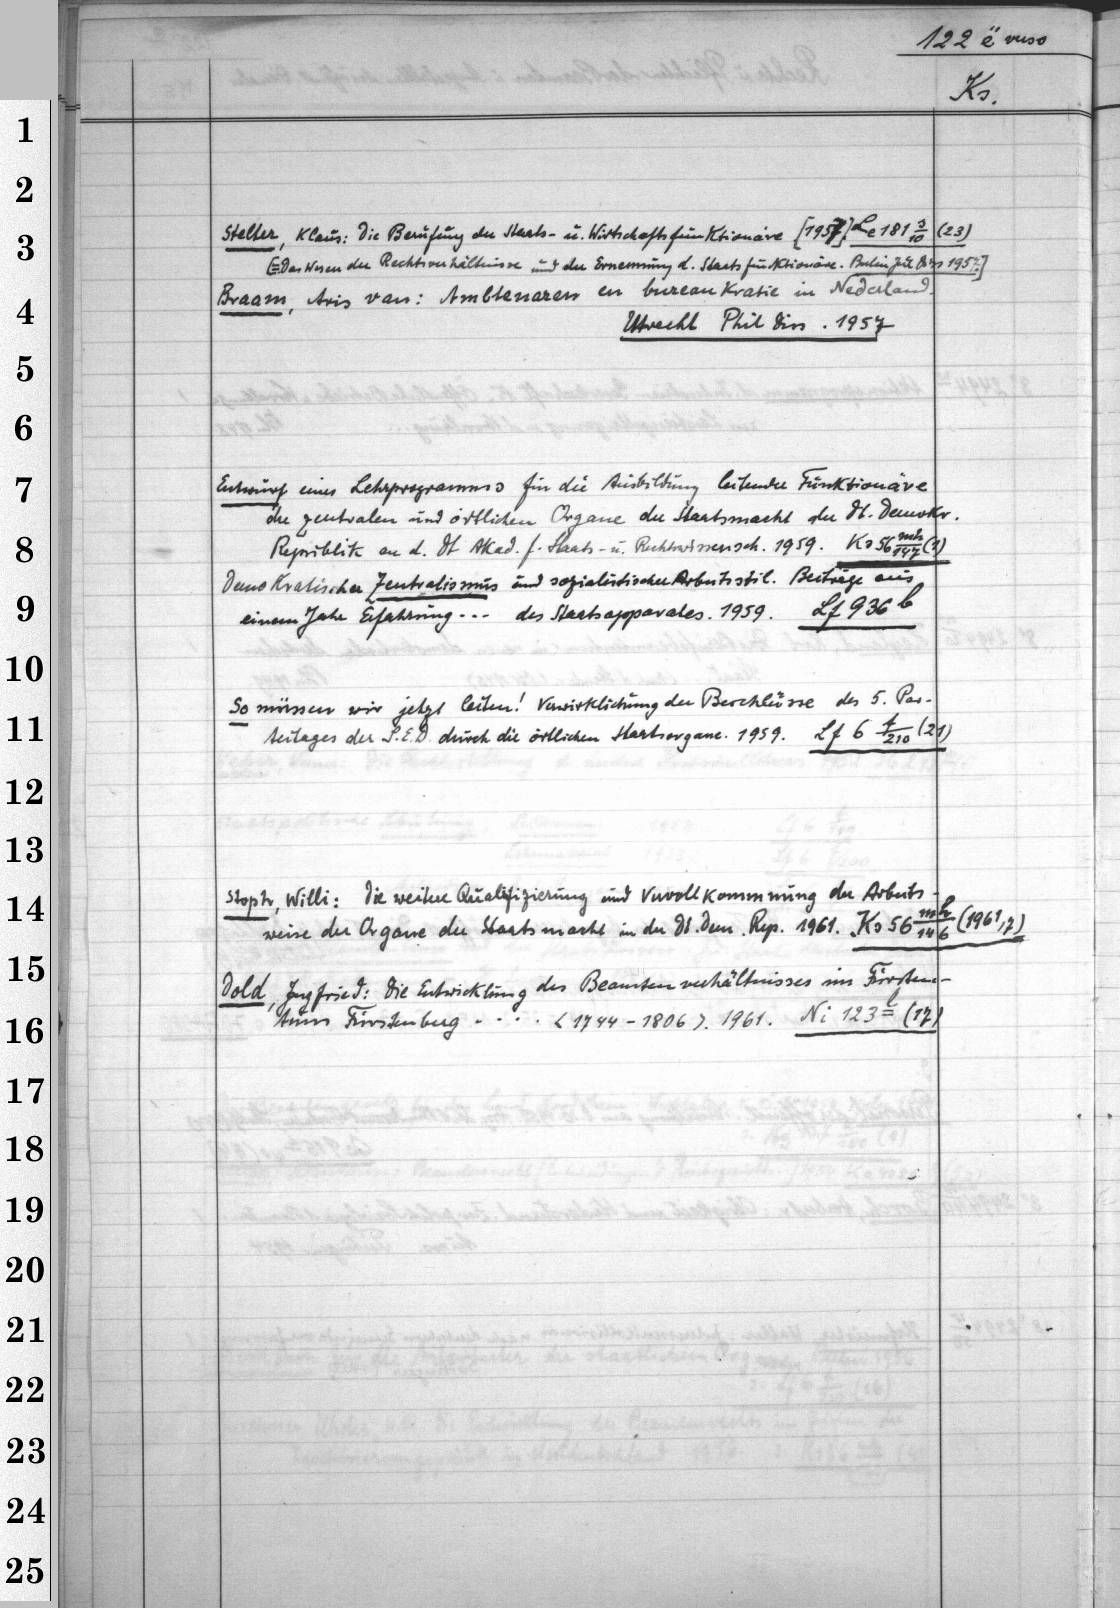 122 ë verso
Ks.
1
2
3
Stelter, Klaus: Die Berufung der Staats- u. Wirtschaftsfunktionäre [1957] Le 181 3/10 (23)
[= Das Wesen der Rechtsverhältnisse und der Ernennung d. Staatsfunktionäre. Berlin Jur Diss 1957.]
4
Braam, Aris van: Ambtenaren en bureaukratie in Nederland.
Utrecht Phil Diss. 1957
5
6
7
Entwurf eines Lehrprogramms für die Ausbildung leitender Funktionäre
der zentralen und örtlichen Organe der Staatsmacht der Dt. Demokr.
8
Republik an d. Dt Akad. f. Staats- u. Rechtswissensch. 1959. Ks 56 mh/147 (1)
Demokratischer Zentralismus und sozialistischer Arbeitsstil. Beiträge aus
9
einem Jahr Erfahrung... des Staatsapparates. 1959. Lf 936 b
10
So müssen wir jetzt leiten! Verwirklichung der Beschlüsse des 5. Par-
11
teitages der S.E.D. durch die örtlichen Staatsorgane. 1959. Lf 6 t/210 (21)
12
13
14
Stoph, Willi: Die weitere Qualifizierung und Vervollkommnung der Arbeits-
weise der Organe der Staatsmacht in der Dt. Dem. Rep. 1961. Ks 56 mh/146 (1961,7)
15
Dold, Jngfried: Die Entwicklung des Beamtenverhältnisses im Fürsten-
16
tum Fürstenberg .... <1744-1806>. 1961. Ni 123 (17)
17
18
19
20
21
22
23
24
25